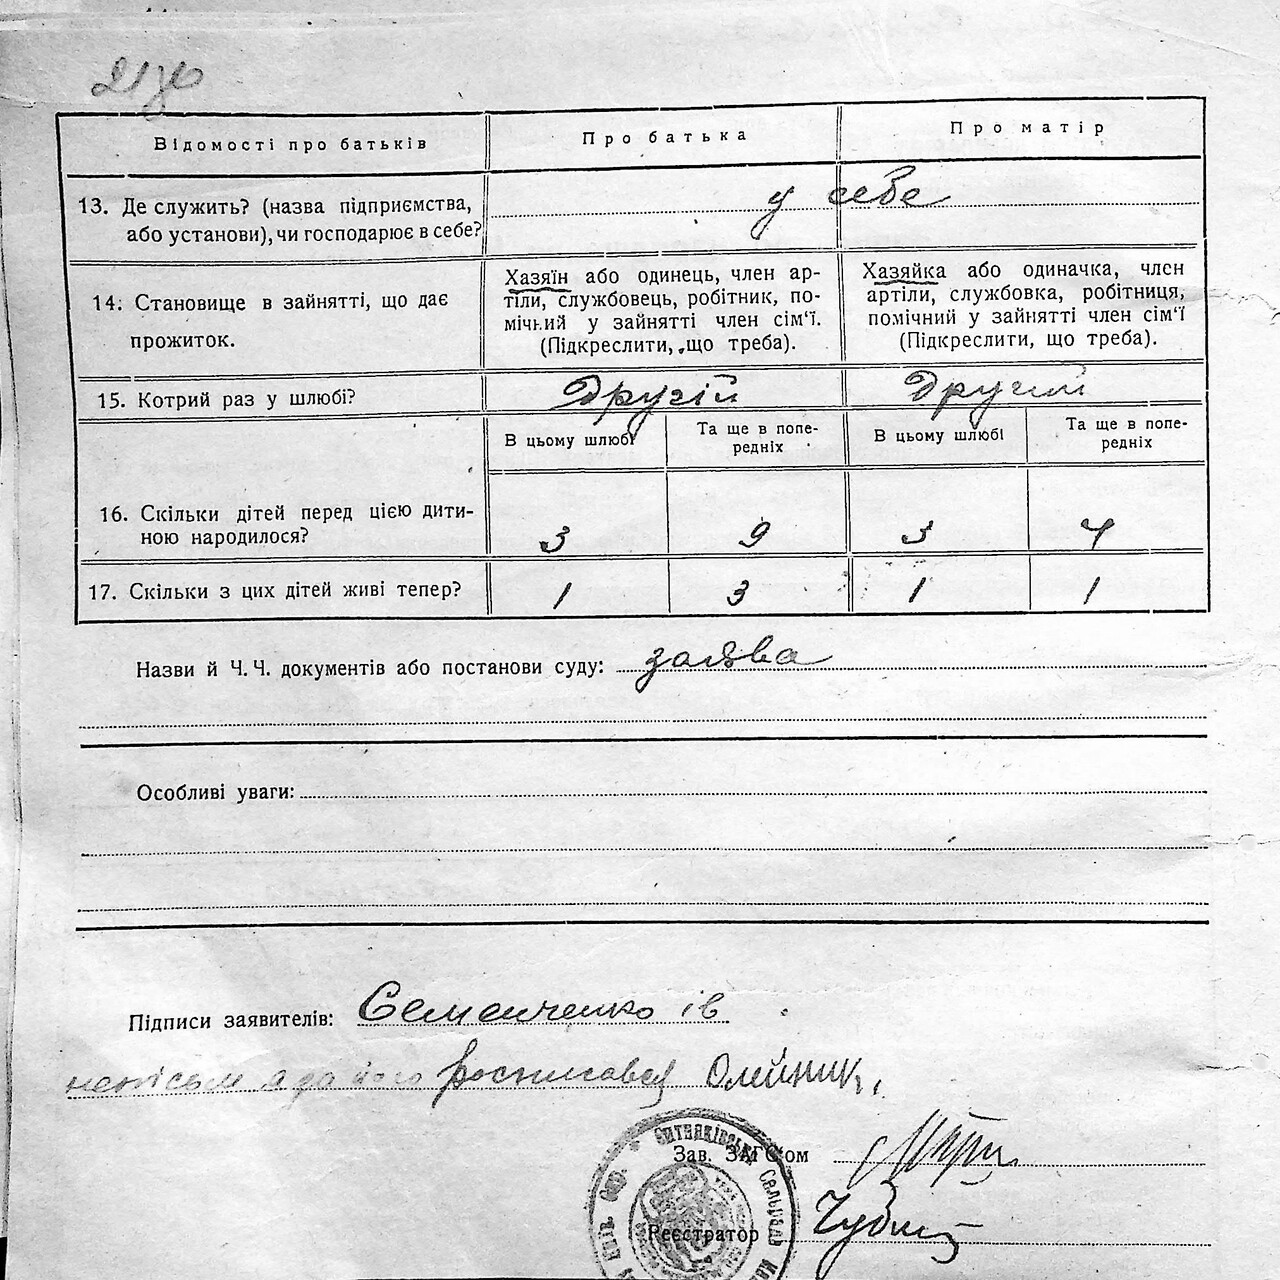 21зв
Відомості про батьків
Про батька
Про матір
13. Де служить? (назва підприємства,
або установи), чи господарює в себе?
у себе
14. Становище в зайнятті, що дає
прожиток.
Хазяїн або одинець, член ар-
тіли, службовець, робітник, по-
мічний у зайнятті член сім‘ї.
(Підкреслити, що треба).
Хазяйка або одиначка, член
артіли, службовка, робітниця,
помічний у зайнятті член сім‘ї
(Підкреслити, що треба).
15. Котрий раз у шлюбі?
Другій
Другий
В цьому шлюбі
Та ще в попе-
редніх
В цьому шлюбі
Та ще в попе-
редніх
16. Скільки дітей перед цією дити-
ною народилося?
3 9 3 4
17. Скільки з цих дітей живі тепер?
1 3 1 1
Назви й Ч. Ч. документів або постанови суду: заява
Особливі уваги:
Підписи заявителів: Семенченко ів
за його росписався Олейник
Зав. ЗАГС'ом
Реєстратор
Ситняківська Сельрада